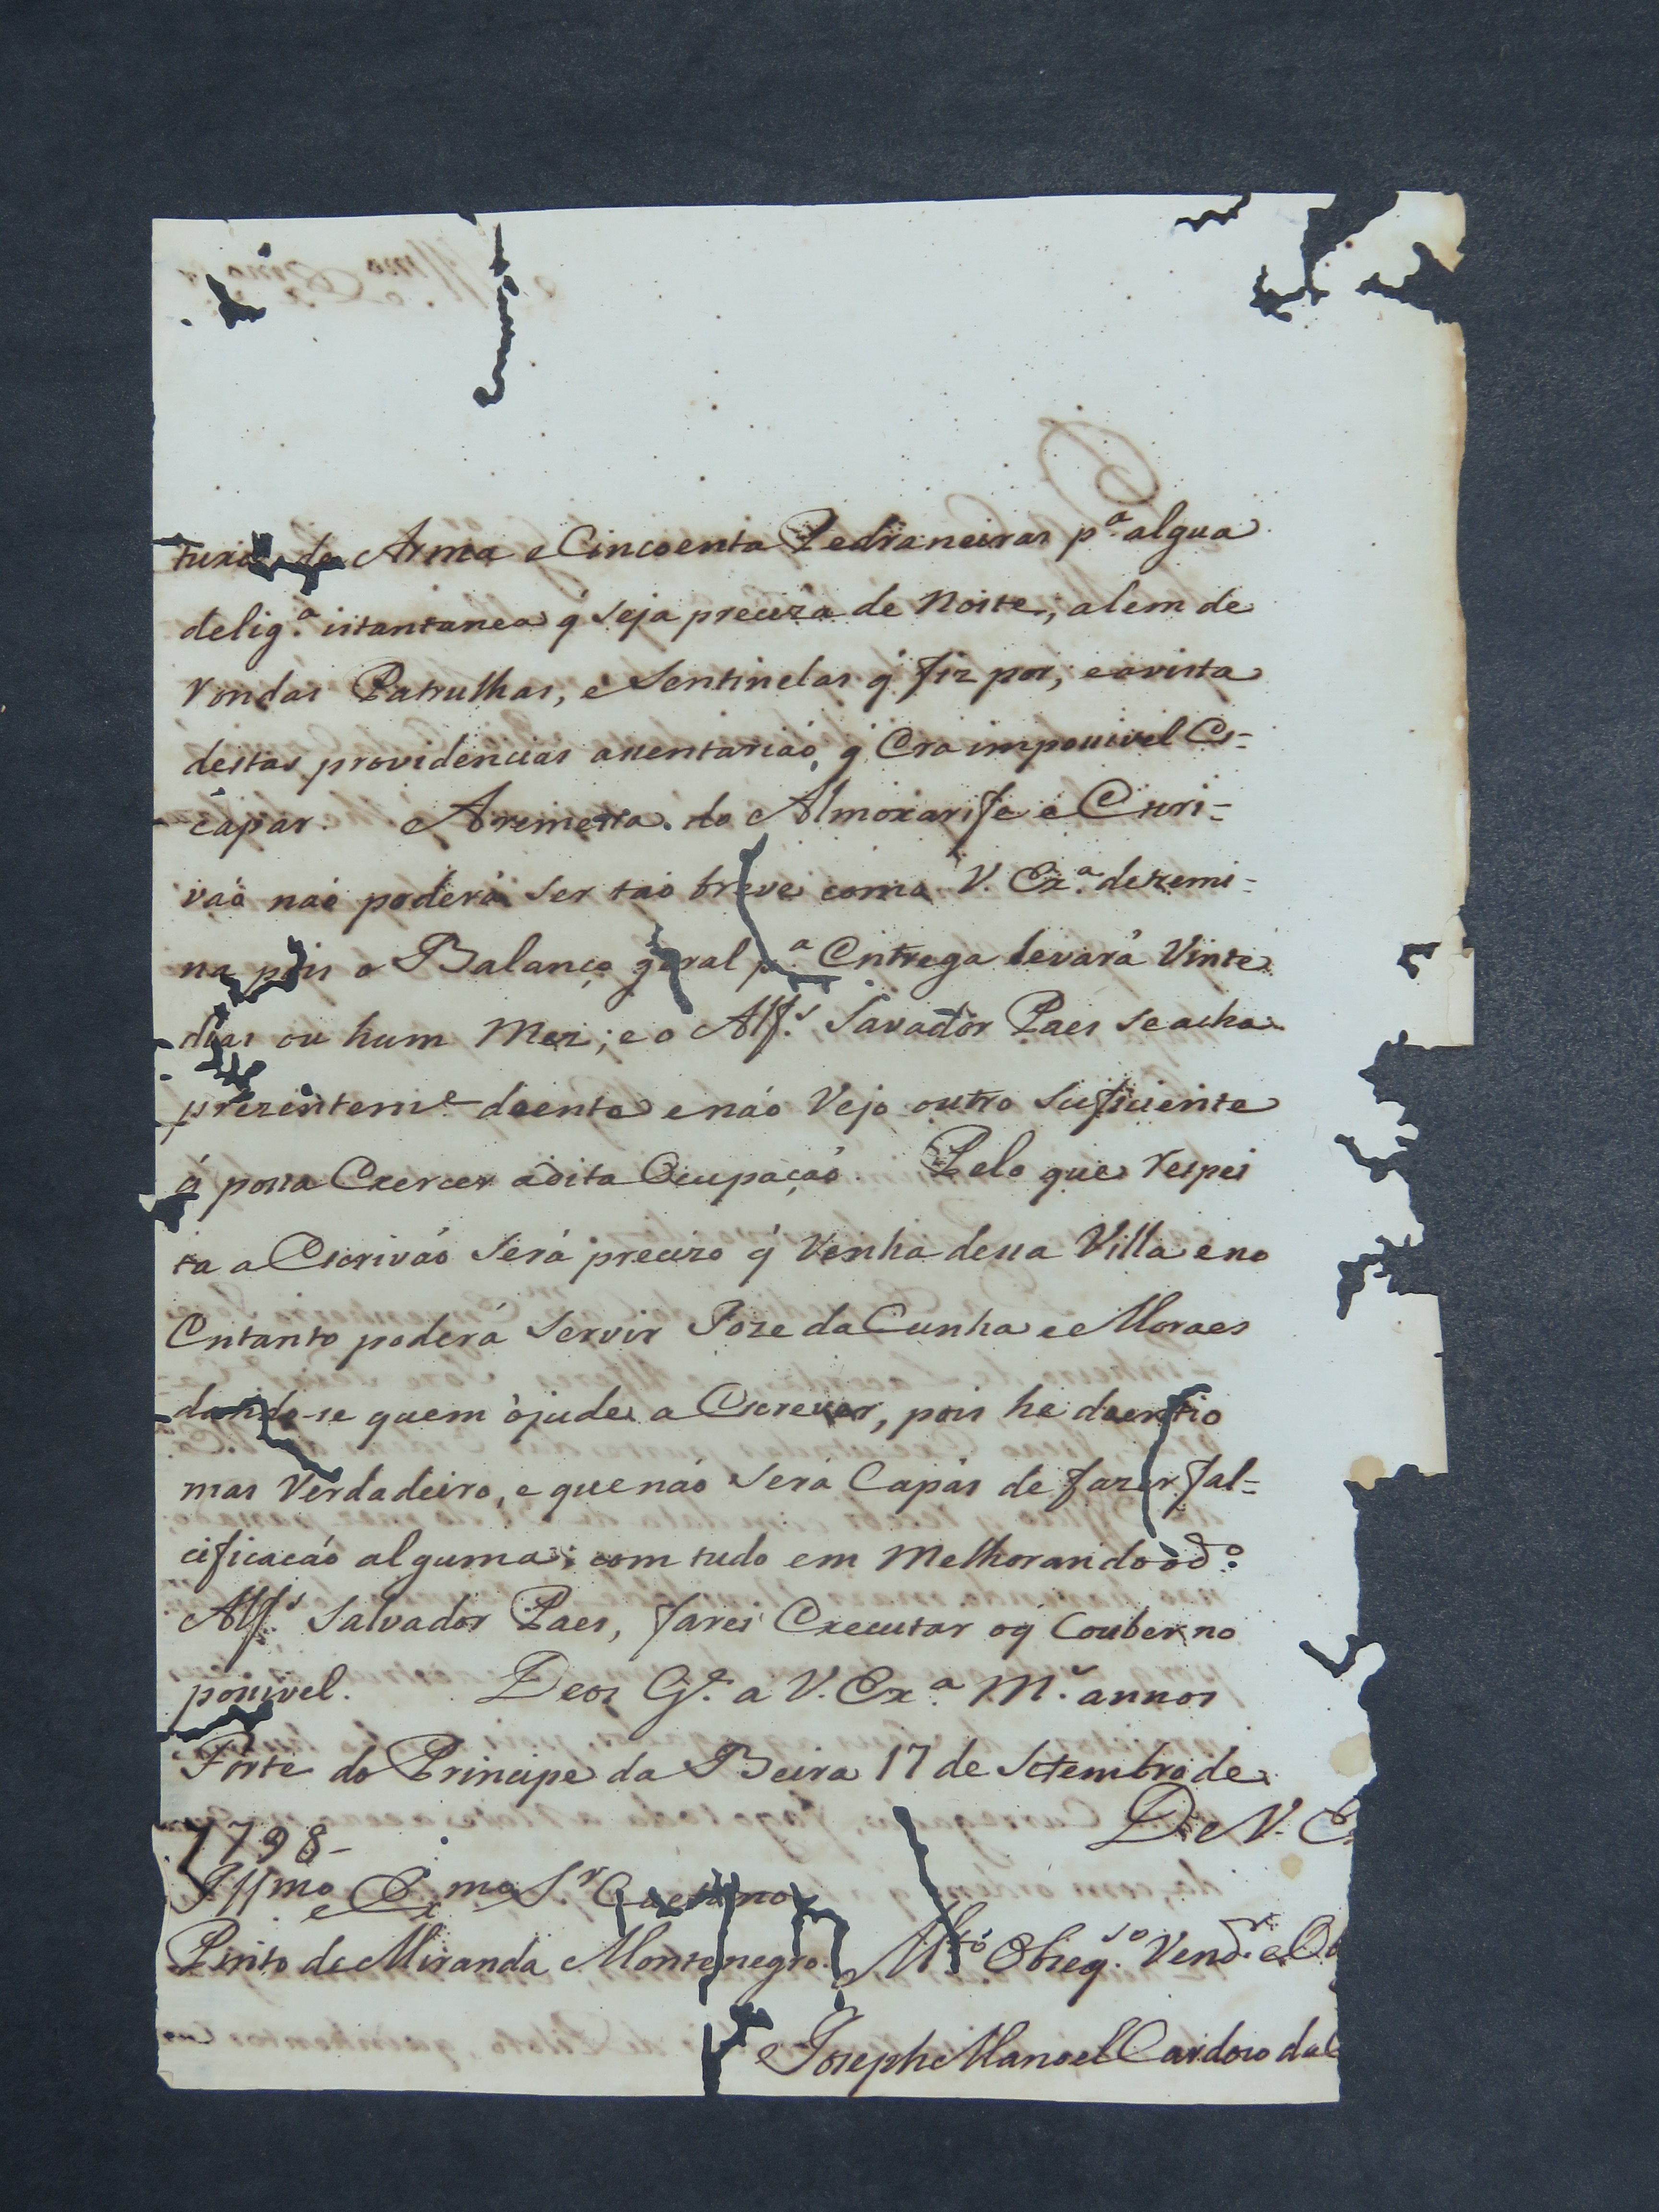 de Arma e Cincoenta Pedraneiras p.ª algua
delig.ª istantanea q̃ seja preciza de Noite; alem de
Rondas Patrulhas, e Sentinelas q̃ fiz por; e avista
destas providencias asentarião, q̃ Era impossivel Es-
capar. A remessa do Almoxarife e Escri-
vaõ naõ poderá ser taõ breve como V. Ex.ª detremi-
na pois o Balanço geral p.ª Entrega levará Vinte
dias ou hum Mez; e o Alf.s Savador Paes se acha
prezentem.e doente e náo Vejo outro suficiente
q̃ possa Exercer adita Ocupação. Pelo que respei
ta a Escriváo Será precizo q̃ Venha dessa Villa e no
Entanto poderá Servir Joze da Cunha e Moraes
dando-se quem ojude a Escrever, pois he doentio
mas Verdadeiro, e que náo Será Capás de fazer fal-
cificacáo alguma; com tudo em Melhorando o d.º
Alf.s Salvador Paes, farei Executar oq̃ Couber no
possivel. Deos G.e a V. Ex.ª M.s annos
Forte do Principe da Beira 17 de Setembro de
1798-
De V. E
Illmo e Exmo Sr Caetano
Pinto de Miranda Montenegro.
M.to Obzeq.so Vend.r e Ob
Joseph Manoel Cardozo da C